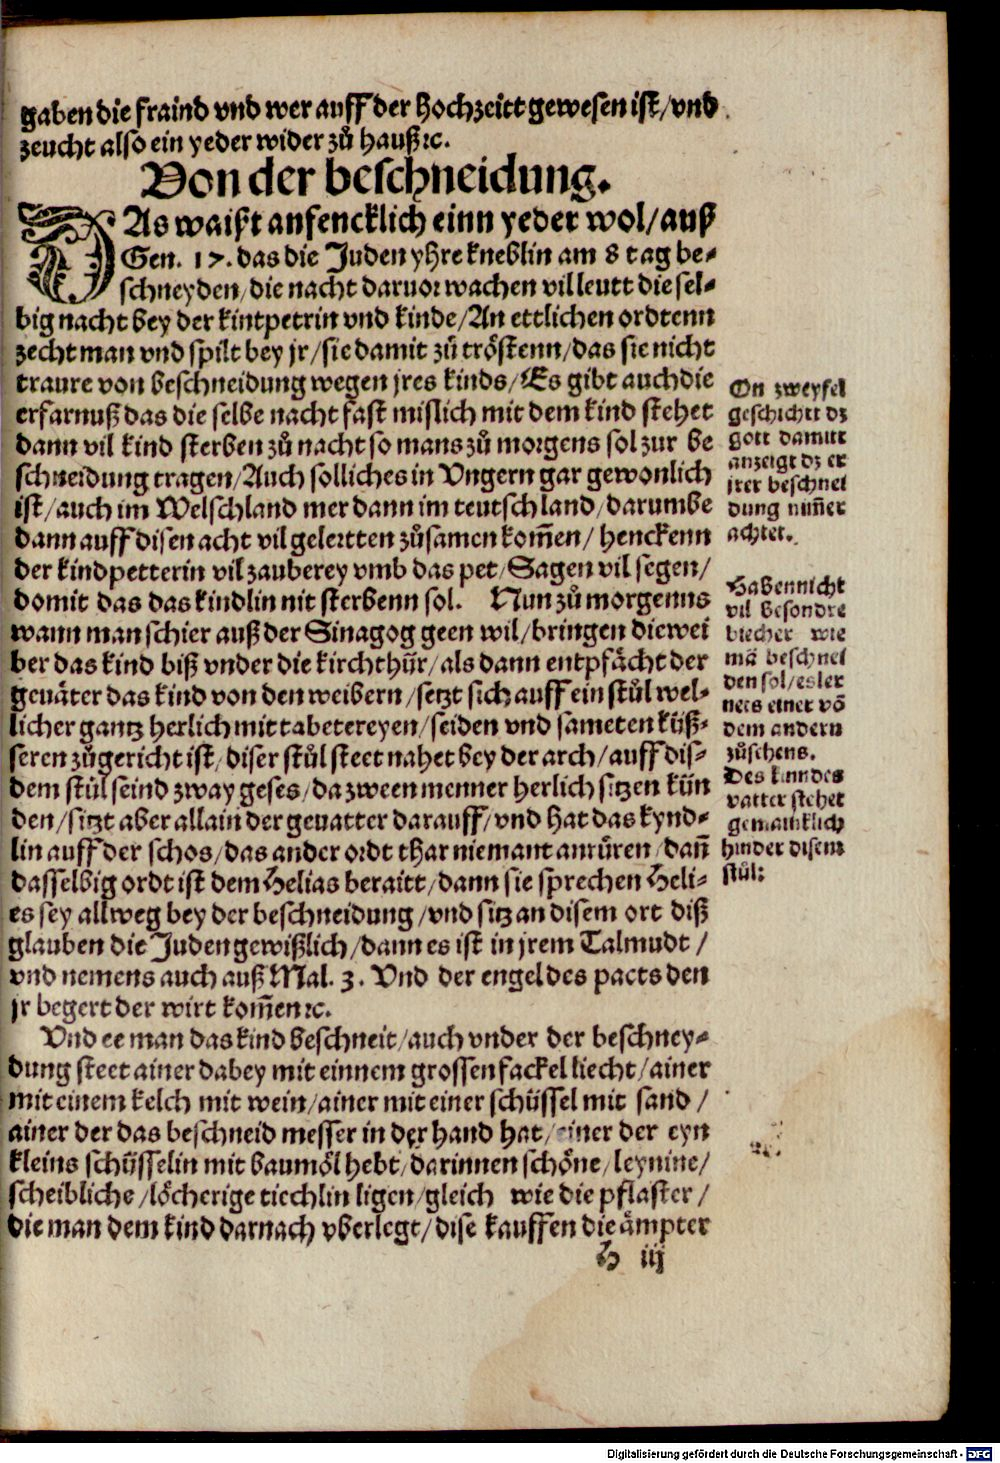 gaben die fraind vnd wer auff der Hochzeitt gewesen ist/vnd
zeucht also ein yeder wider zů hauß ꝛc.
Von der beschneidung.
DAs waißt anfencklich einn yeder wol/auß
Gen. 17. das die Juden yhre kneblin am 8 tag be-
schneyden/die nacht daruor wachen vil leutt die sel-
big nacht bey der kintpetrin vnd kinde/An ettlichen ordtenn
zecht man vnd spilt bey jr/sie damit zů tröstenn/das sie nicht
traure von beschneidung wegen jres kinds/Es gibt auch die
erfarnuß das die selbe nacht fast mislich mit dem kind stehet
dann vil kind sterben zů nacht so mans zů morgens sol zur be
schneidung tragen/Auch solliches in Vngern gar gewonlich
ist/auch im Welschland mer dann im teutschland/darumbe
dann auff disen acht vil gelertten zůsamen kom̃en/henckenn
der kindpetterin vil zauberey vmb das pet/Sagen vil segen/
domit das das kindlin nit sterbenn sol. Nun zů morgenns
wann man schier auß der Sinagog geen wil/bringen die wei
ber das kind biß vnder die kirchthür/als dann entpfächt der
geuäter das kind von den weibern/setzt sich auff ein stůl wel-
licher gantz herlich mit tabetereyen/seiden vnd sameten küß-
seren zůgericht ist/diser stůl steet nahet bey der arch/auff dis-
dem stůl seind zway geses/da zween menner herlich sitzen kün
den/sitzt aber allain der geuatter darauff/vnd hat das kynd-
lin auff der schos/das ander ordt thar niemant anrüren/dañ
dasselbig ordt ist dem Helias beraitt/dann sie sprechen Heli-
es sey allweg bey der beschneidung/vnd sitz an disem ort diß
glauben die Juden gewißlich/dann es ist in jrem Talmudt/
vnd nemens auch auß Mal. 3. Vnd der engel des pacts den
jr begert der wirt kom̃en ꝛc.
Vnd ee man das kind beschneit/auch vnder der beschney-
dung steet ainer dabey mit einnem grossen fackel liecht/ainer
mit einem kelch mit wein/ainer mit einer schüssel mit sand/
ainer der das beschneid messer in der hand hat/einer der eyn
kleins schüsselin mit baumöl hebt/darinnen schöne/leynine/
scheibliche/löcherige tiechlin ligen/gleich wie die pflaster/
die man dem kind darnach vberlegt/dise kauffen die ämpter
H iij
On zweyfel
geschicht dz
gott damitt
anzeigt dz er
jrer beschnei
dung nim̃er
achtet.
Haben nicht
vil besondre
biecher wie
mã beschnei
den sol/es ler
nets einer võ
dem andern
zůsehens.
Des kinndes
vatter stehet
gemainklich
hinder disem
stůl:
Digitalisierung gefördert durch die Deutsche Forschungsgemeinschaft - DFG